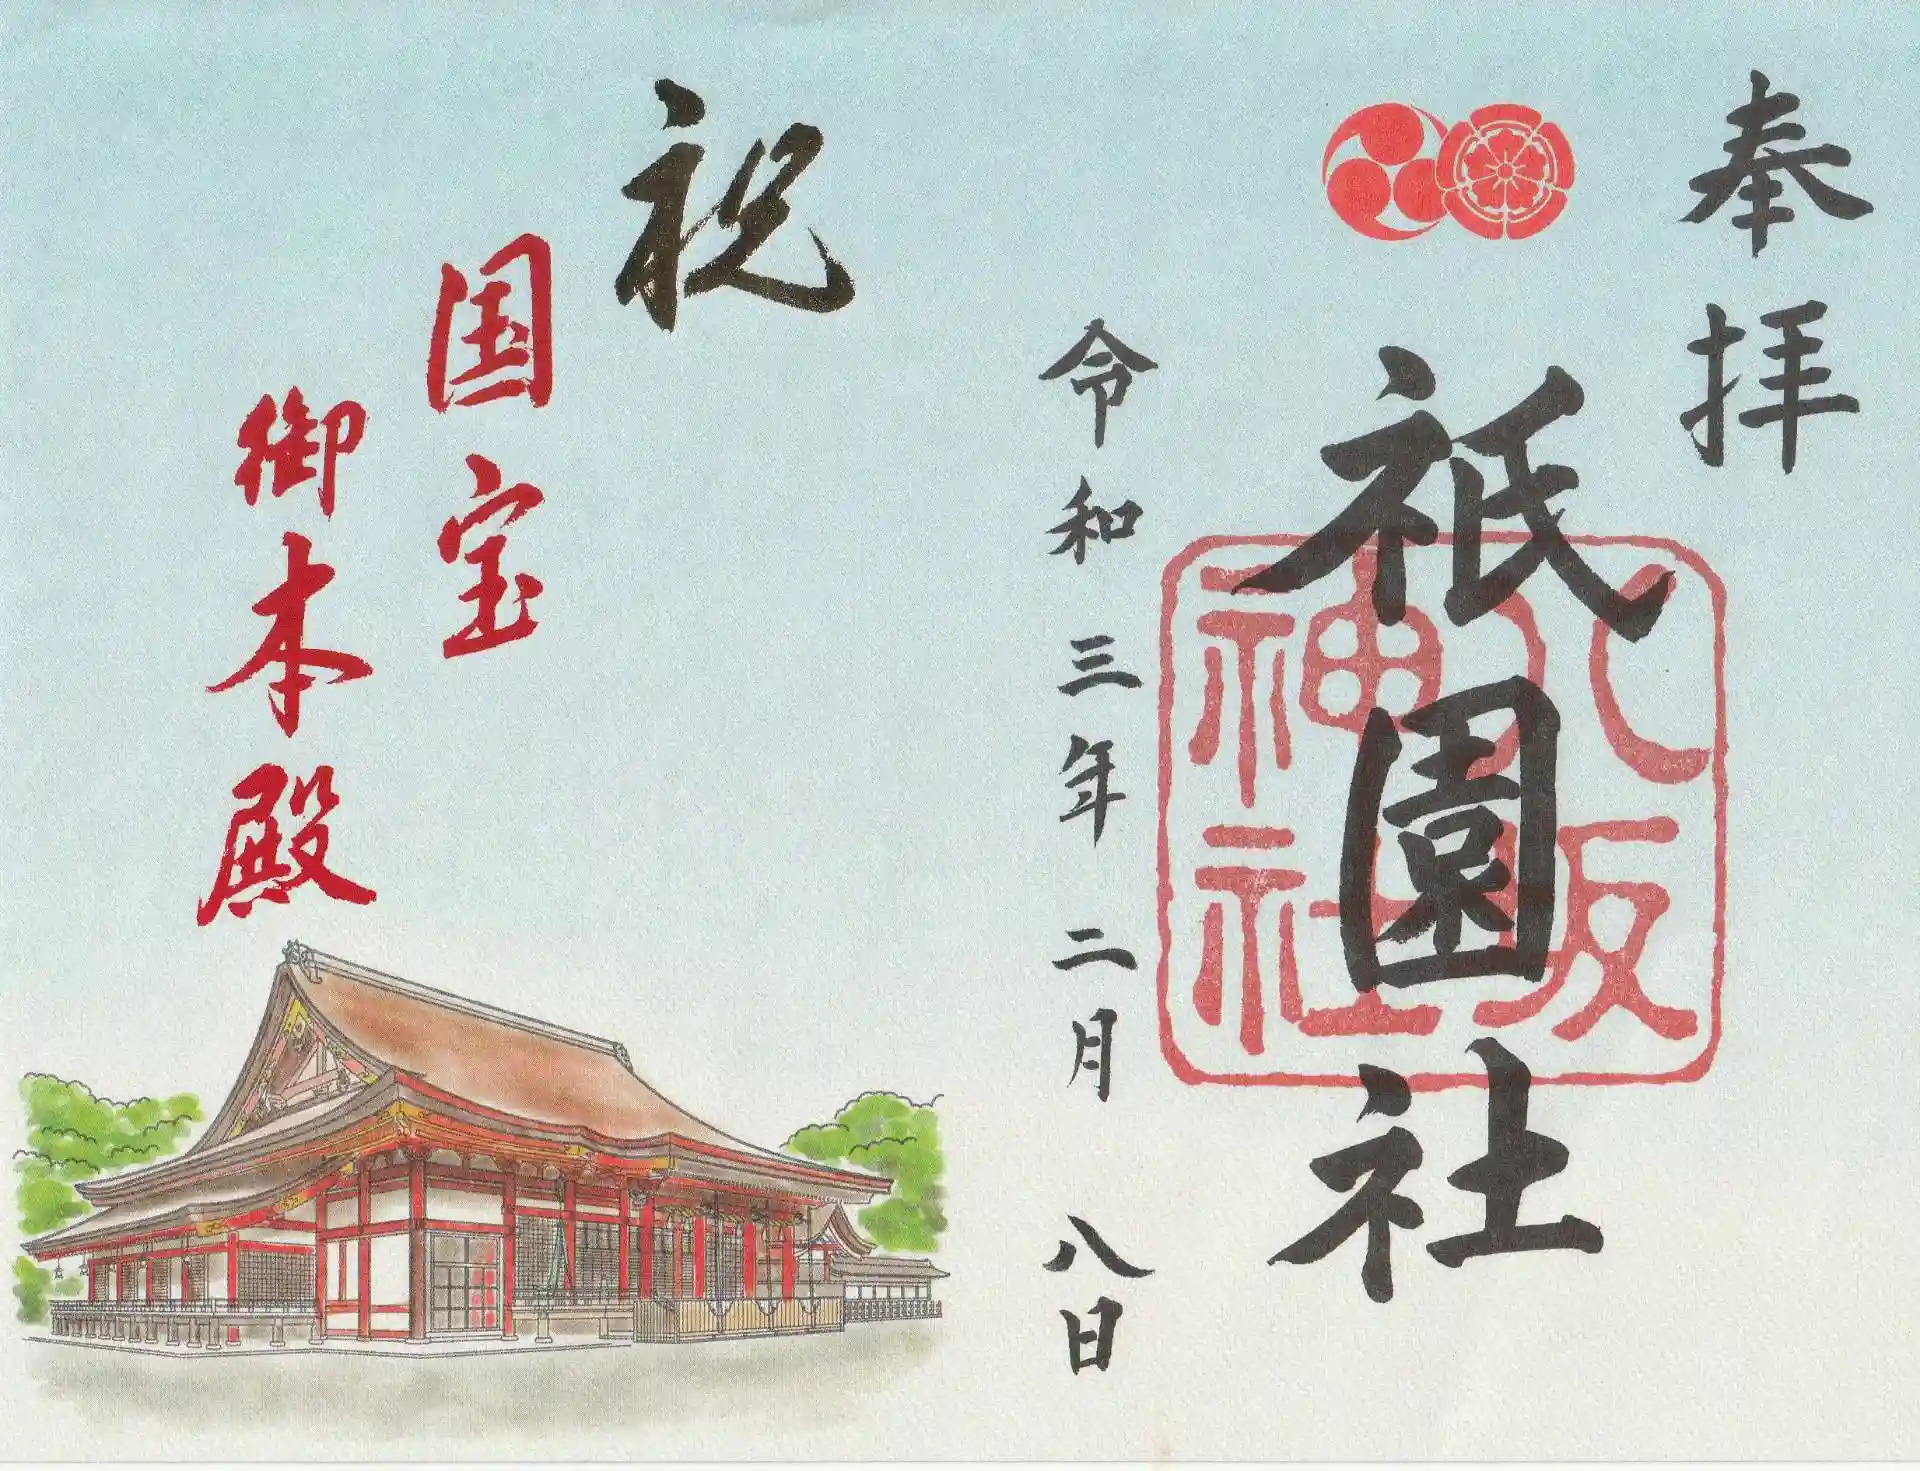 奉拝
祇園社
八坂
神社
令和三年二月八日
祝
国宝
御本殿